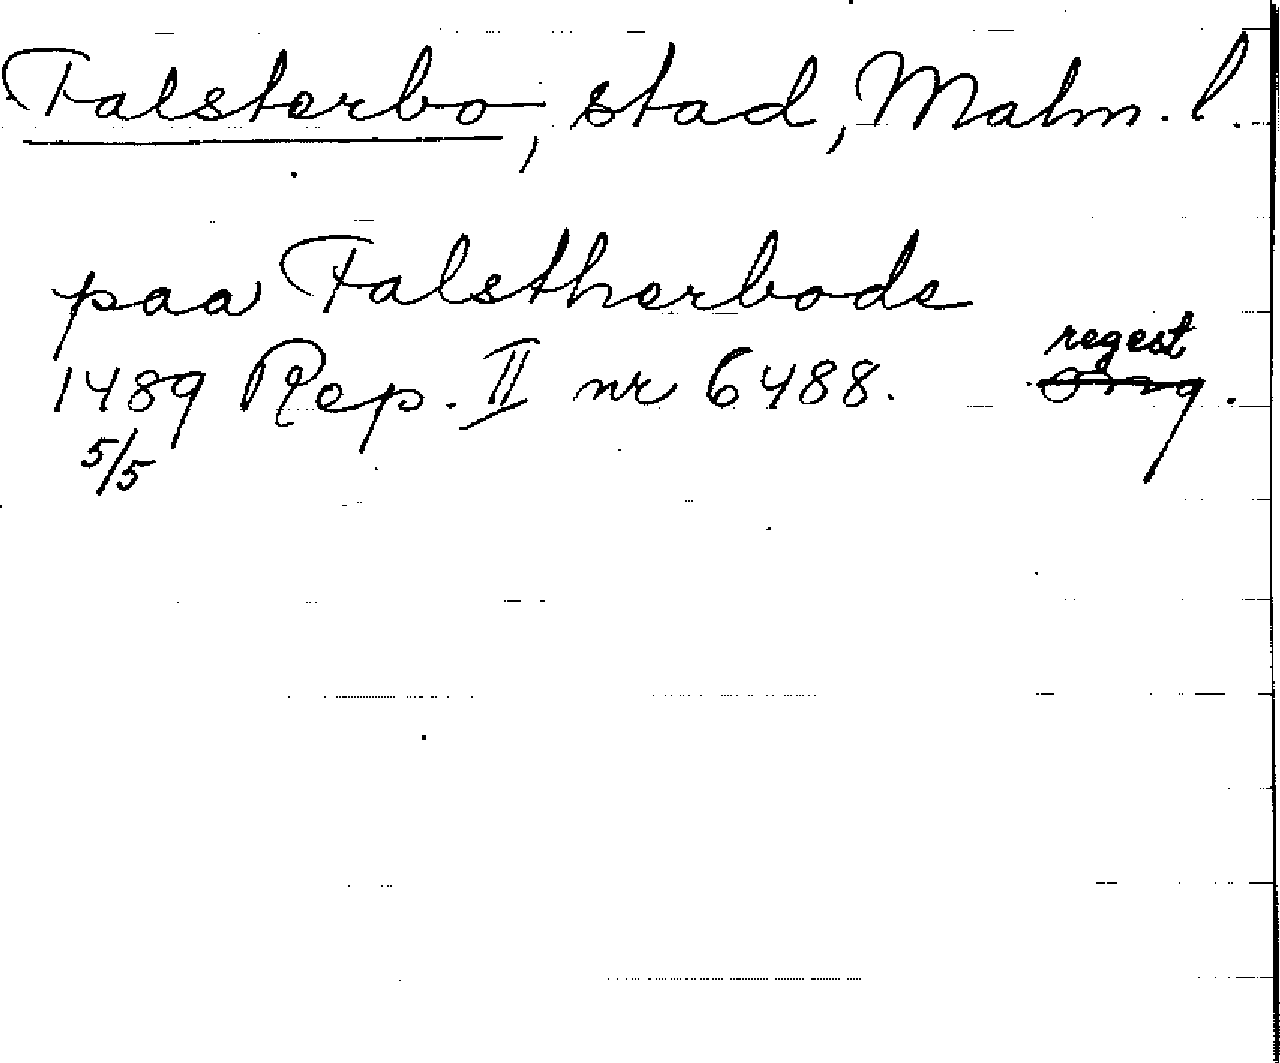 Falsterbo, stad, Malm. l.
paa Falstherbode
regest
1489 Rep. II nr 6488. orig.
5/5